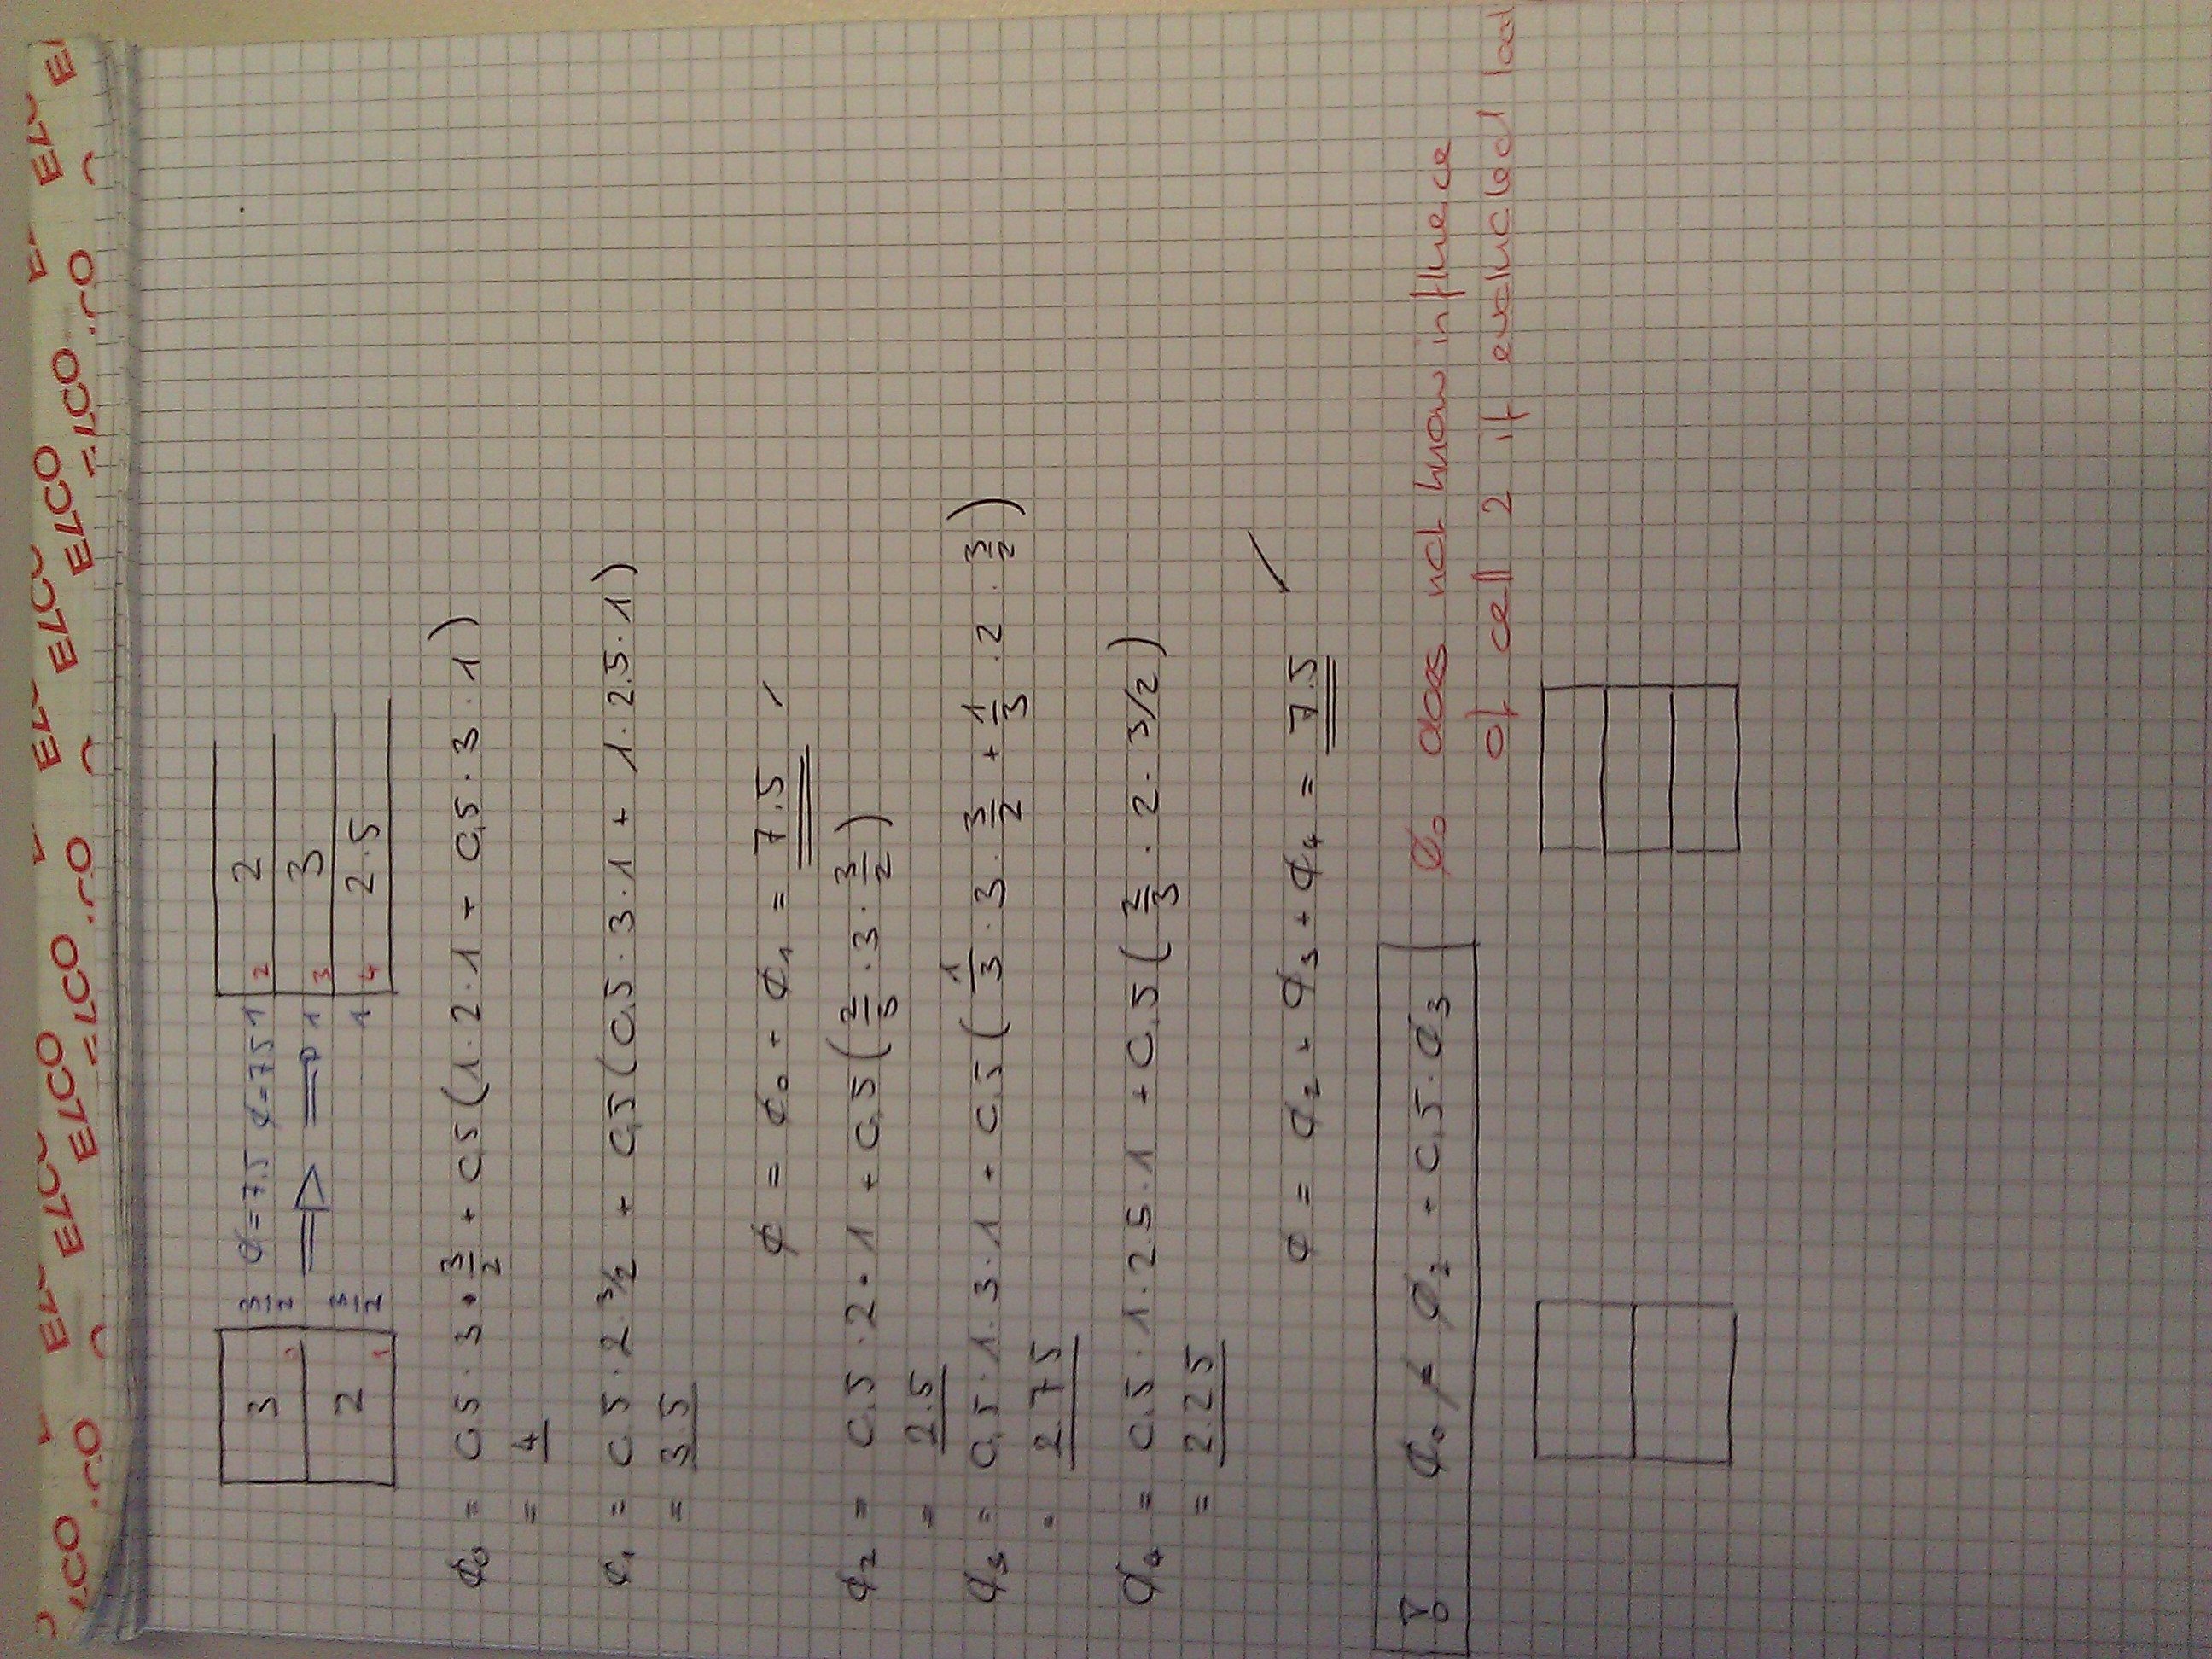 ELCO ELCO ELCO ELCO ELCO
3 3/2 ϕ=7.5 ϕ=7.5 1 2 2
0 ⇒ ⇒ 1 3 3
2 1 3/2 1 4 2.5
ϕ₀ = 0.5 · 3 · 3/2 + 0.5 (1 · 2 · 1 + 0.5 · 3 · 1)
= 4
ϕ₁ = 0.5 · 2 · 3/2 + 0.5 (0.5 · 3 · 1 + 1 · 2.5 · 1)
= 3.5
ϕ = ϕ₀ + ϕ₁ = 7.5 ✓
ϕ₂ = 0.5 · 2 · 1 + 0.5 (2/3 · 3 · 3/2)
= 2.5
ϕ₃ = 0.5 · 1 · 3 · 1 + 0.5 (1/3 · 3 · 3/2 + 1/3 · 2 · 3/2)
= 2.75
ϕ₄ = 0.5 · 1 · 2.5 · 1 + 0.5 (2/3 · 2 · 3/2)
= 2.25
ϕ = ϕ₂ + ϕ₃ + ϕ₄ = 7.5 ✓
! ϕ₀ ≠ ϕ₂ + 0.5 · ϕ₃ ϕ₀ does not know influence
of cell 2 if evaluated local